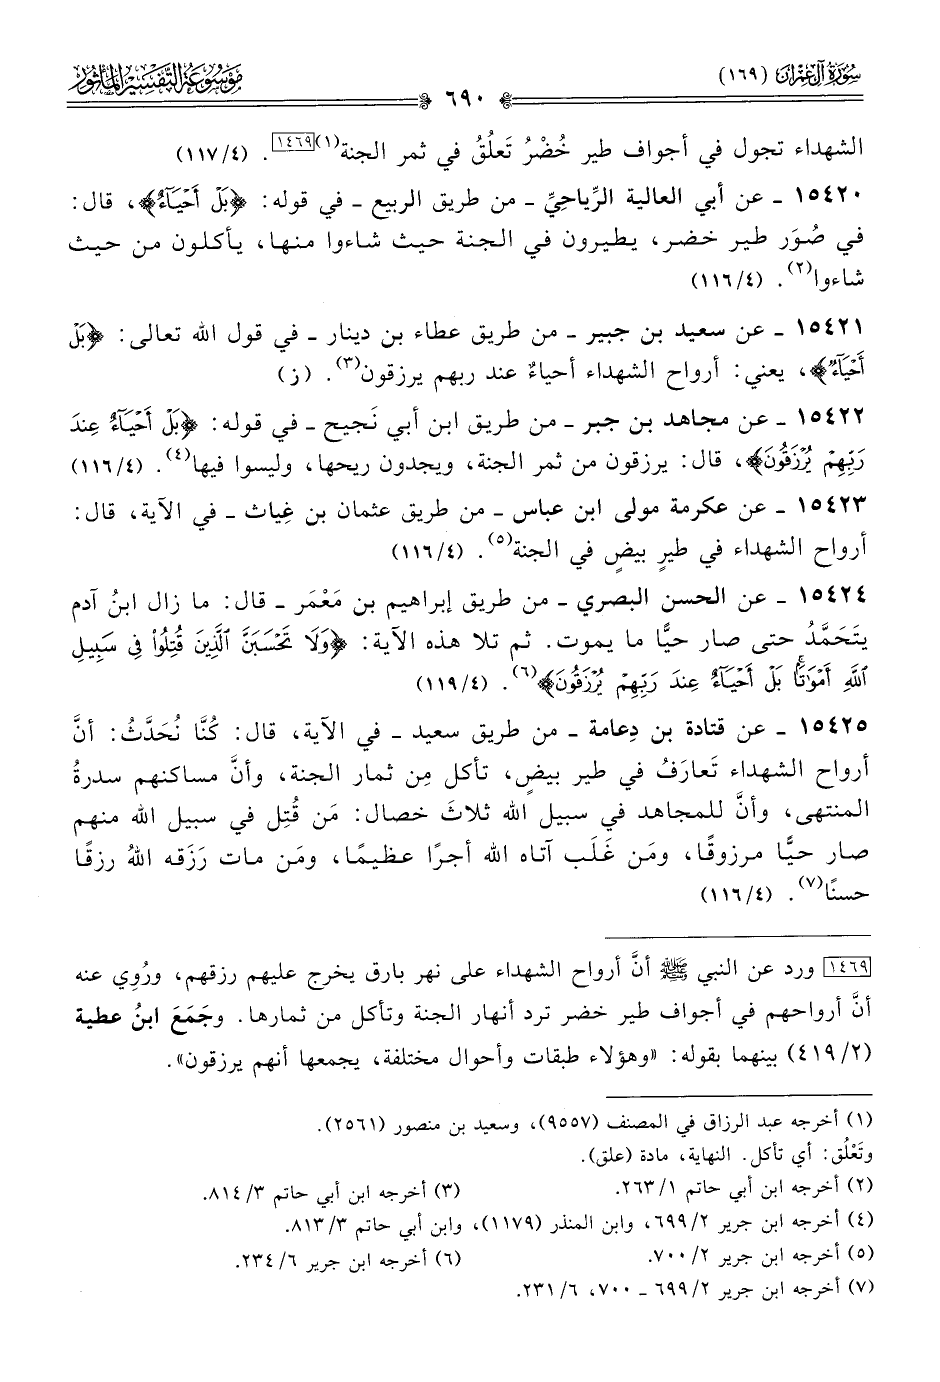 سُورَةُ آلِ عِمْرَان (١٦٩)
٦٩٠
مَوْسُوعَةُ التَّفْسِيرِ المَأْثُور
الشهداء تجول في أجواف طير خُضْرُ تَعلُقُ في ثمر الجنة(١)[١٤٦٩]. (١١٧/٤)
١٥٤٢٠ ـ عن أبي العالية الرِّياحِيِّ ـ من طريق الربيع ـ في قوله: ﴿بَلْ أَحْيَآءٌ﴾، قال:
في صُوَر طير خضر، يطيرون في الجنة حيث شاءوا منها، يأكلون من حيث
شاءوا(٢). (١١٦/٤)
١٥٤٢١ ـ عن سعيد بن جبير ـ من طريق عطاء بن دينار ـ في قول الله تعالى: ﴿بَلْ
أَحْيَآءٌ﴾، يعني: أرواح الشهداء أحياءٌ عند ربهم يرزقون(٣). (ز)
١٥٤٢٢ ـ عن مجاهد بن جبر ـ من طريق ابن أبي نَجيح ـ في قوله: ﴿بَلْ أَحْيَآءٌ عِندَ
رَبِّهِمْ يُرْزَقُونَ﴾، قال: يرزقون من ثمر الجنة، ويجدون ريحها، وليسوا فيها(٤). (١١٦/٤)
١٥٤٢٣ ـ عن عكرمة مولى ابن عباس ـ من طريق عثمان بن غِياث ـ في الآية، قال:
أرواح الشهداء في طيرٍ بيضٍ في الجنة(٥). (١١٦/٤)
١٥٤٢٤ ـ عن الحسن البصري ـ من طريق إبراهيم بن مَعْمَر ـ قال: ما زال ابنُ آدم
يتَحَمَّدُ حتى صار حيًّا ما يموت. ثم تلا هذه الآية: ﴿وَلَا تَحْسَبَنَّ ٱلَّذِينَ قُتِلُوا۟ فِى سَبِيلِ
ٱللَّهِ أَمْوَٰتًۢا بَلْ أَحْيَآءٌ عِندَ رَبِّهِمْ يُرْزَقُونَ﴾(٦). (١١٩/٤)
١٥٤٢٥ ـ عن قتادة بن دِعامة ـ من طريق سعيد ـ في الآية، قال: كُنَّا نُحَدَّثُ: أنَّ
أرواح الشهداء تَعارَفُ في طير بيضٍ، تأكل مِن ثمار الجنة، وأنَّ مساكنهم سدرةُ
المنتهى، وأنَّ للمجاهد في سبيل الله ثلاثَ خصال: مَن قُتِل في سبيل الله منهم
صار حيًّا مرزوقًا، ومَن غَلَب آتاه الله أجرًا عظيمًا، ومَن مات رَزَقه اللهُ رزقًا
حسنًا(٧). (١١٦/٤)
[١٤٦٩] ورد عن النبي ﷺ أنَّ أرواح الشهداء على نهر بارق يخرج عليهم رزقهم، ورُوِي عنه
أنَّ أرواحهم في أجواف طير خضر ترد أنهار الجنة وتأكل من ثمارها. وجَمَعَ ابنُ عطية
(٤١٩/٢) بينهما بقوله: «وهؤلاء طبقات وأحوال مختلفة، يجمعها أنهم يرزقون».
(١) أخرجه عبد الرزاق في المصنف (٩٥٥٧)، وسعيد بن منصور (٢٥٦١).
وتَعْلُق: أي تأكل. النهاية، مادة (علق).
(٢) أخرجه ابن أبي حاتم ٢٦٣/١. (٣) أخرجه ابن أبي حاتم ٨١٤/٣.
(٤) أخرجه ابن جرير ٦٩٩/٢، وابن المنذر (١١٧٩)، وابن أبي حاتم ٨١٣/٣.
(٥) أخرجه ابن جرير ٧٠٠/٢. (٦) أخرجه ابن جرير ٢٣٤/٦.
(٧) أخرجه ابن جرير ٦٩٩/٢ ـ ٧٠٠، ٢٣١/٦.